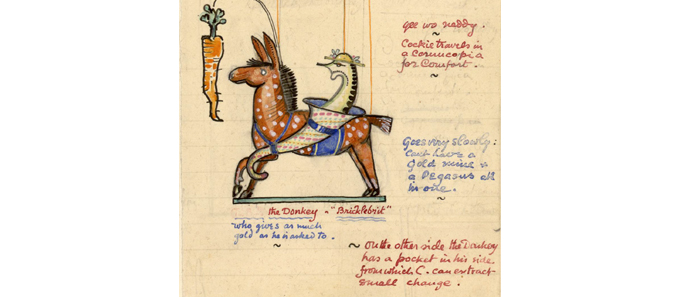 gee wo neddy.
~
Cockie travels in
a Cornucopia
for Comfort.
~
Goes very slowly:
Cant have a
Gold mine &
a Pegasus all
in one.
~
the Donkey - "Bricklebrit"
who gives as much
gold as he is asked to.
~
~ On the other side the Donkey
has a pocket in his side
from which C. can extract
small change.